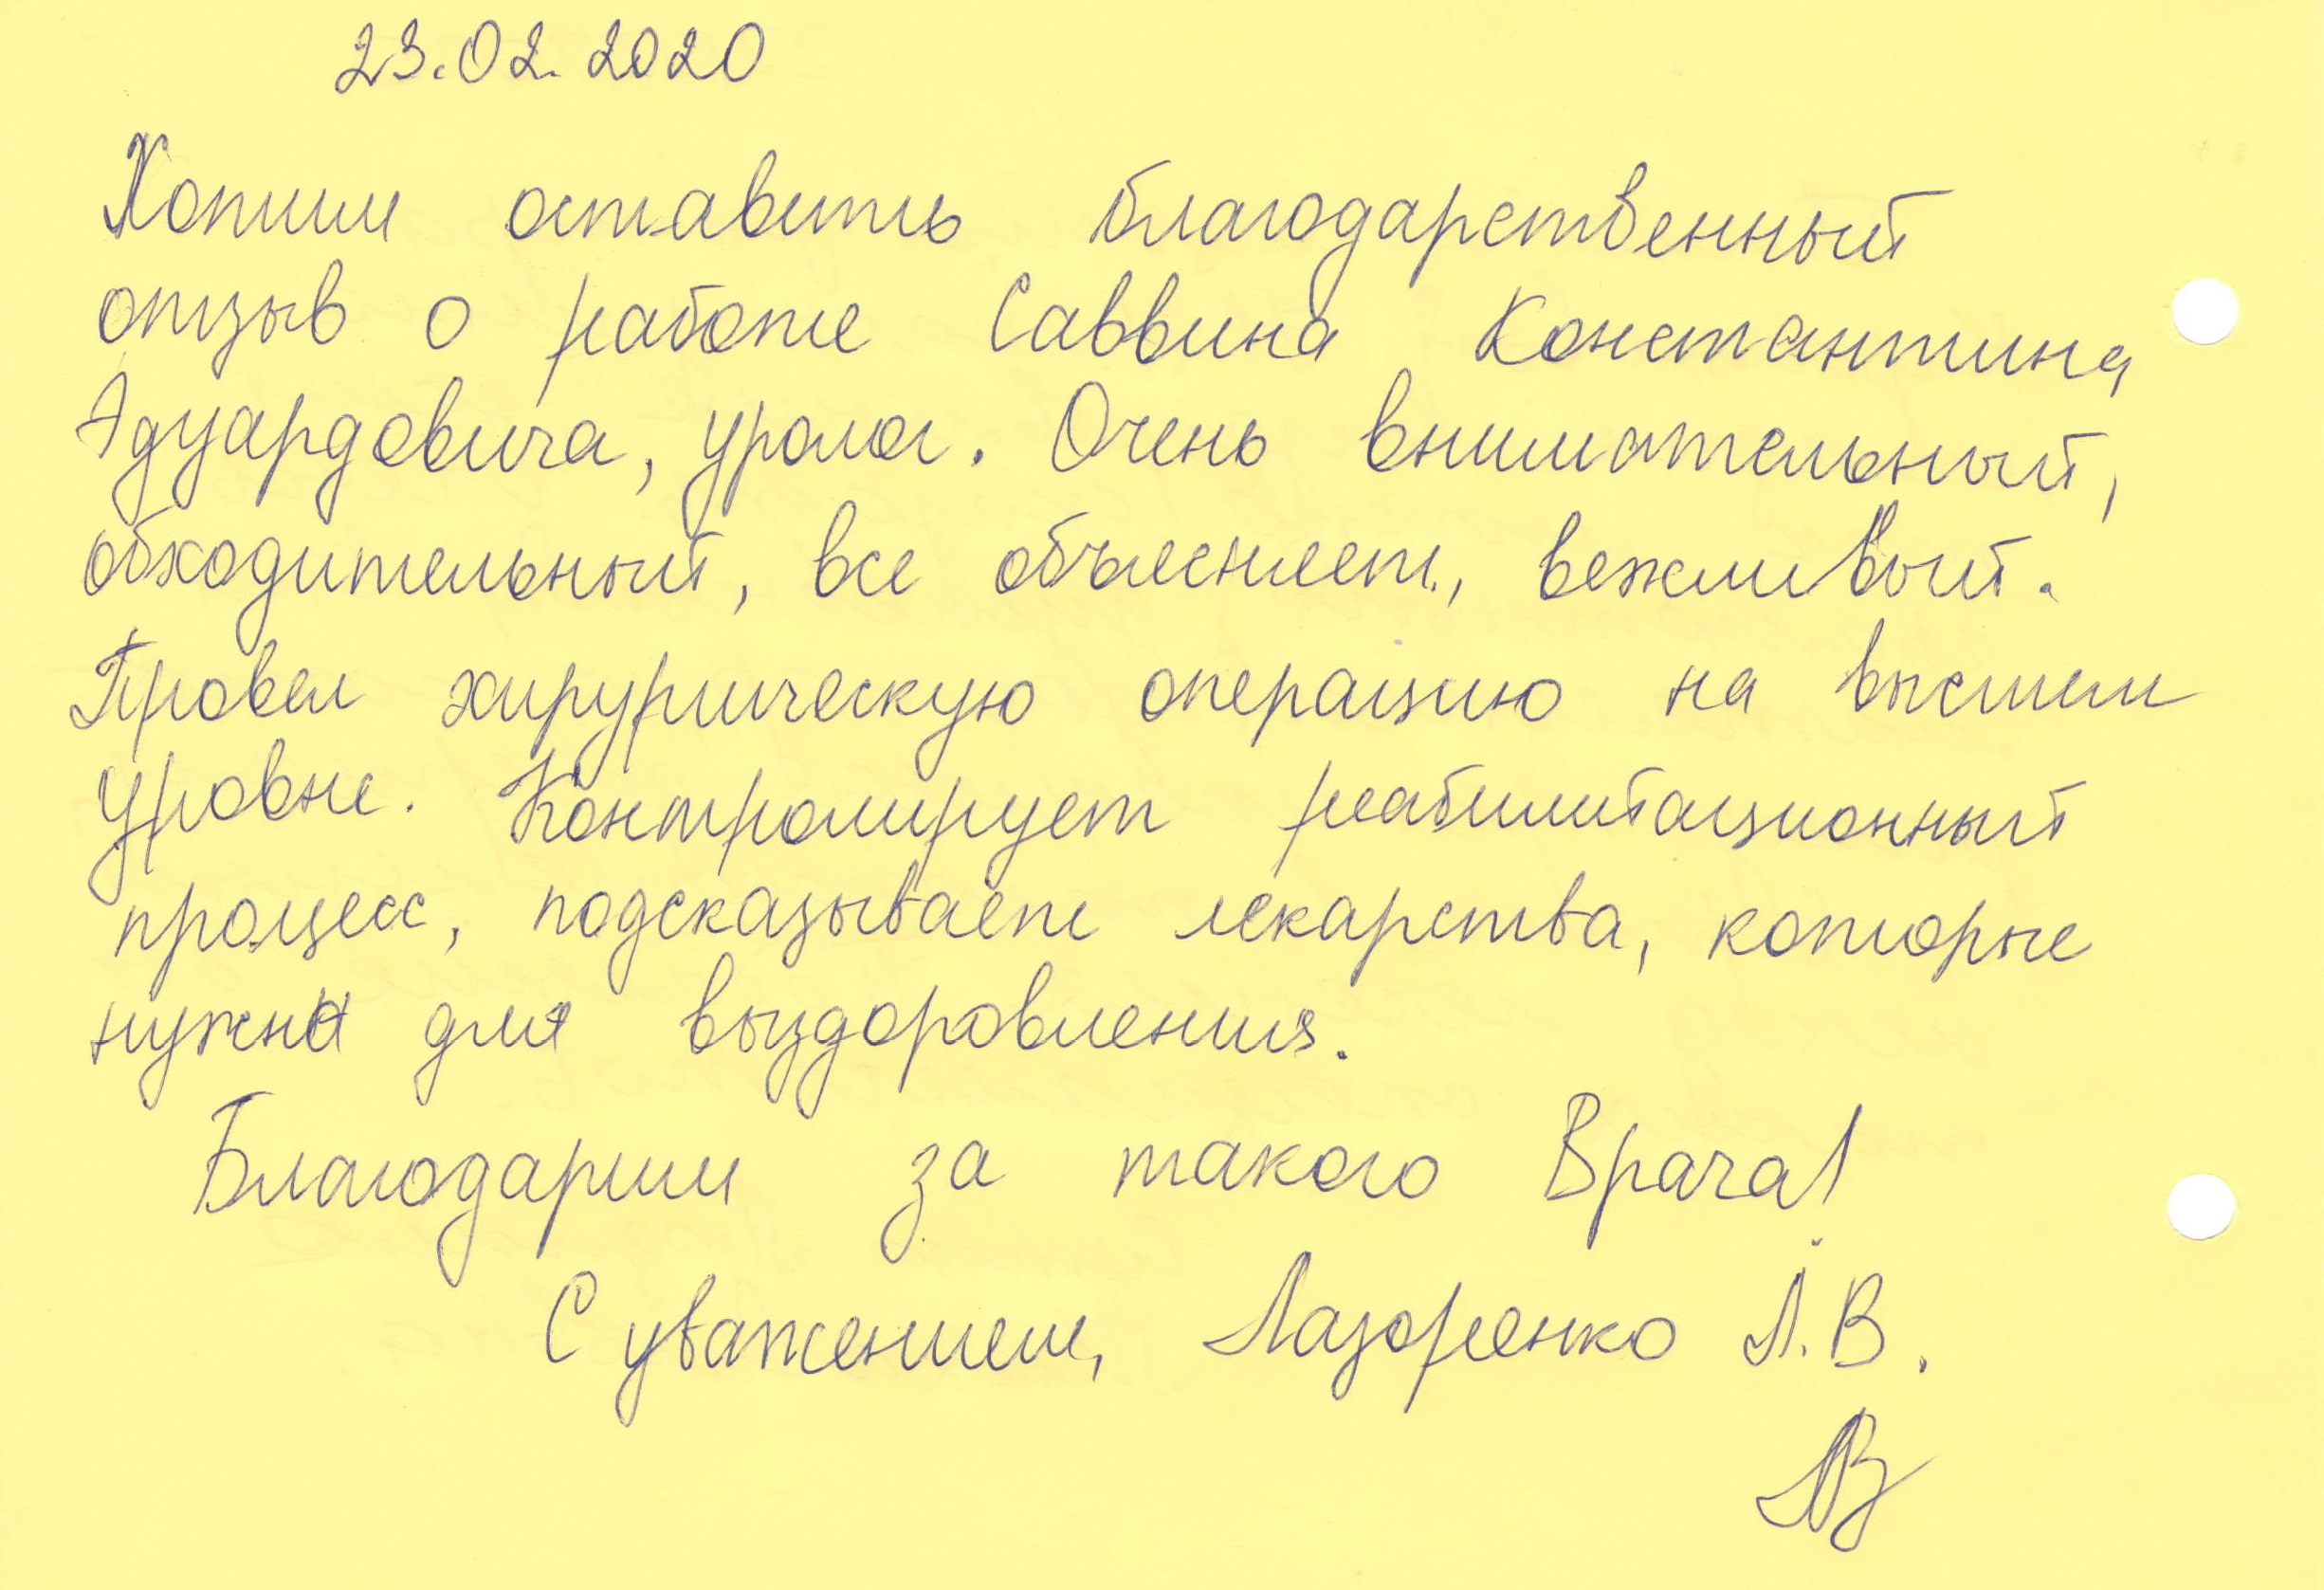 23.02.2020
Хотим оставить благодарственный
отзыв о работе Саввина Константина
Эдуардовича, уролог. Очень внимательный,
обходительный, все объясняет, вежливый.
Провел хирургическую операцию на высшем
уровне. Контролирует реабилитационный
процесс, подсказывает лекарства, которые
нужны для выздоровления.
Благодарим за такого Врача!
С уважением, Лазоренко Л.В.